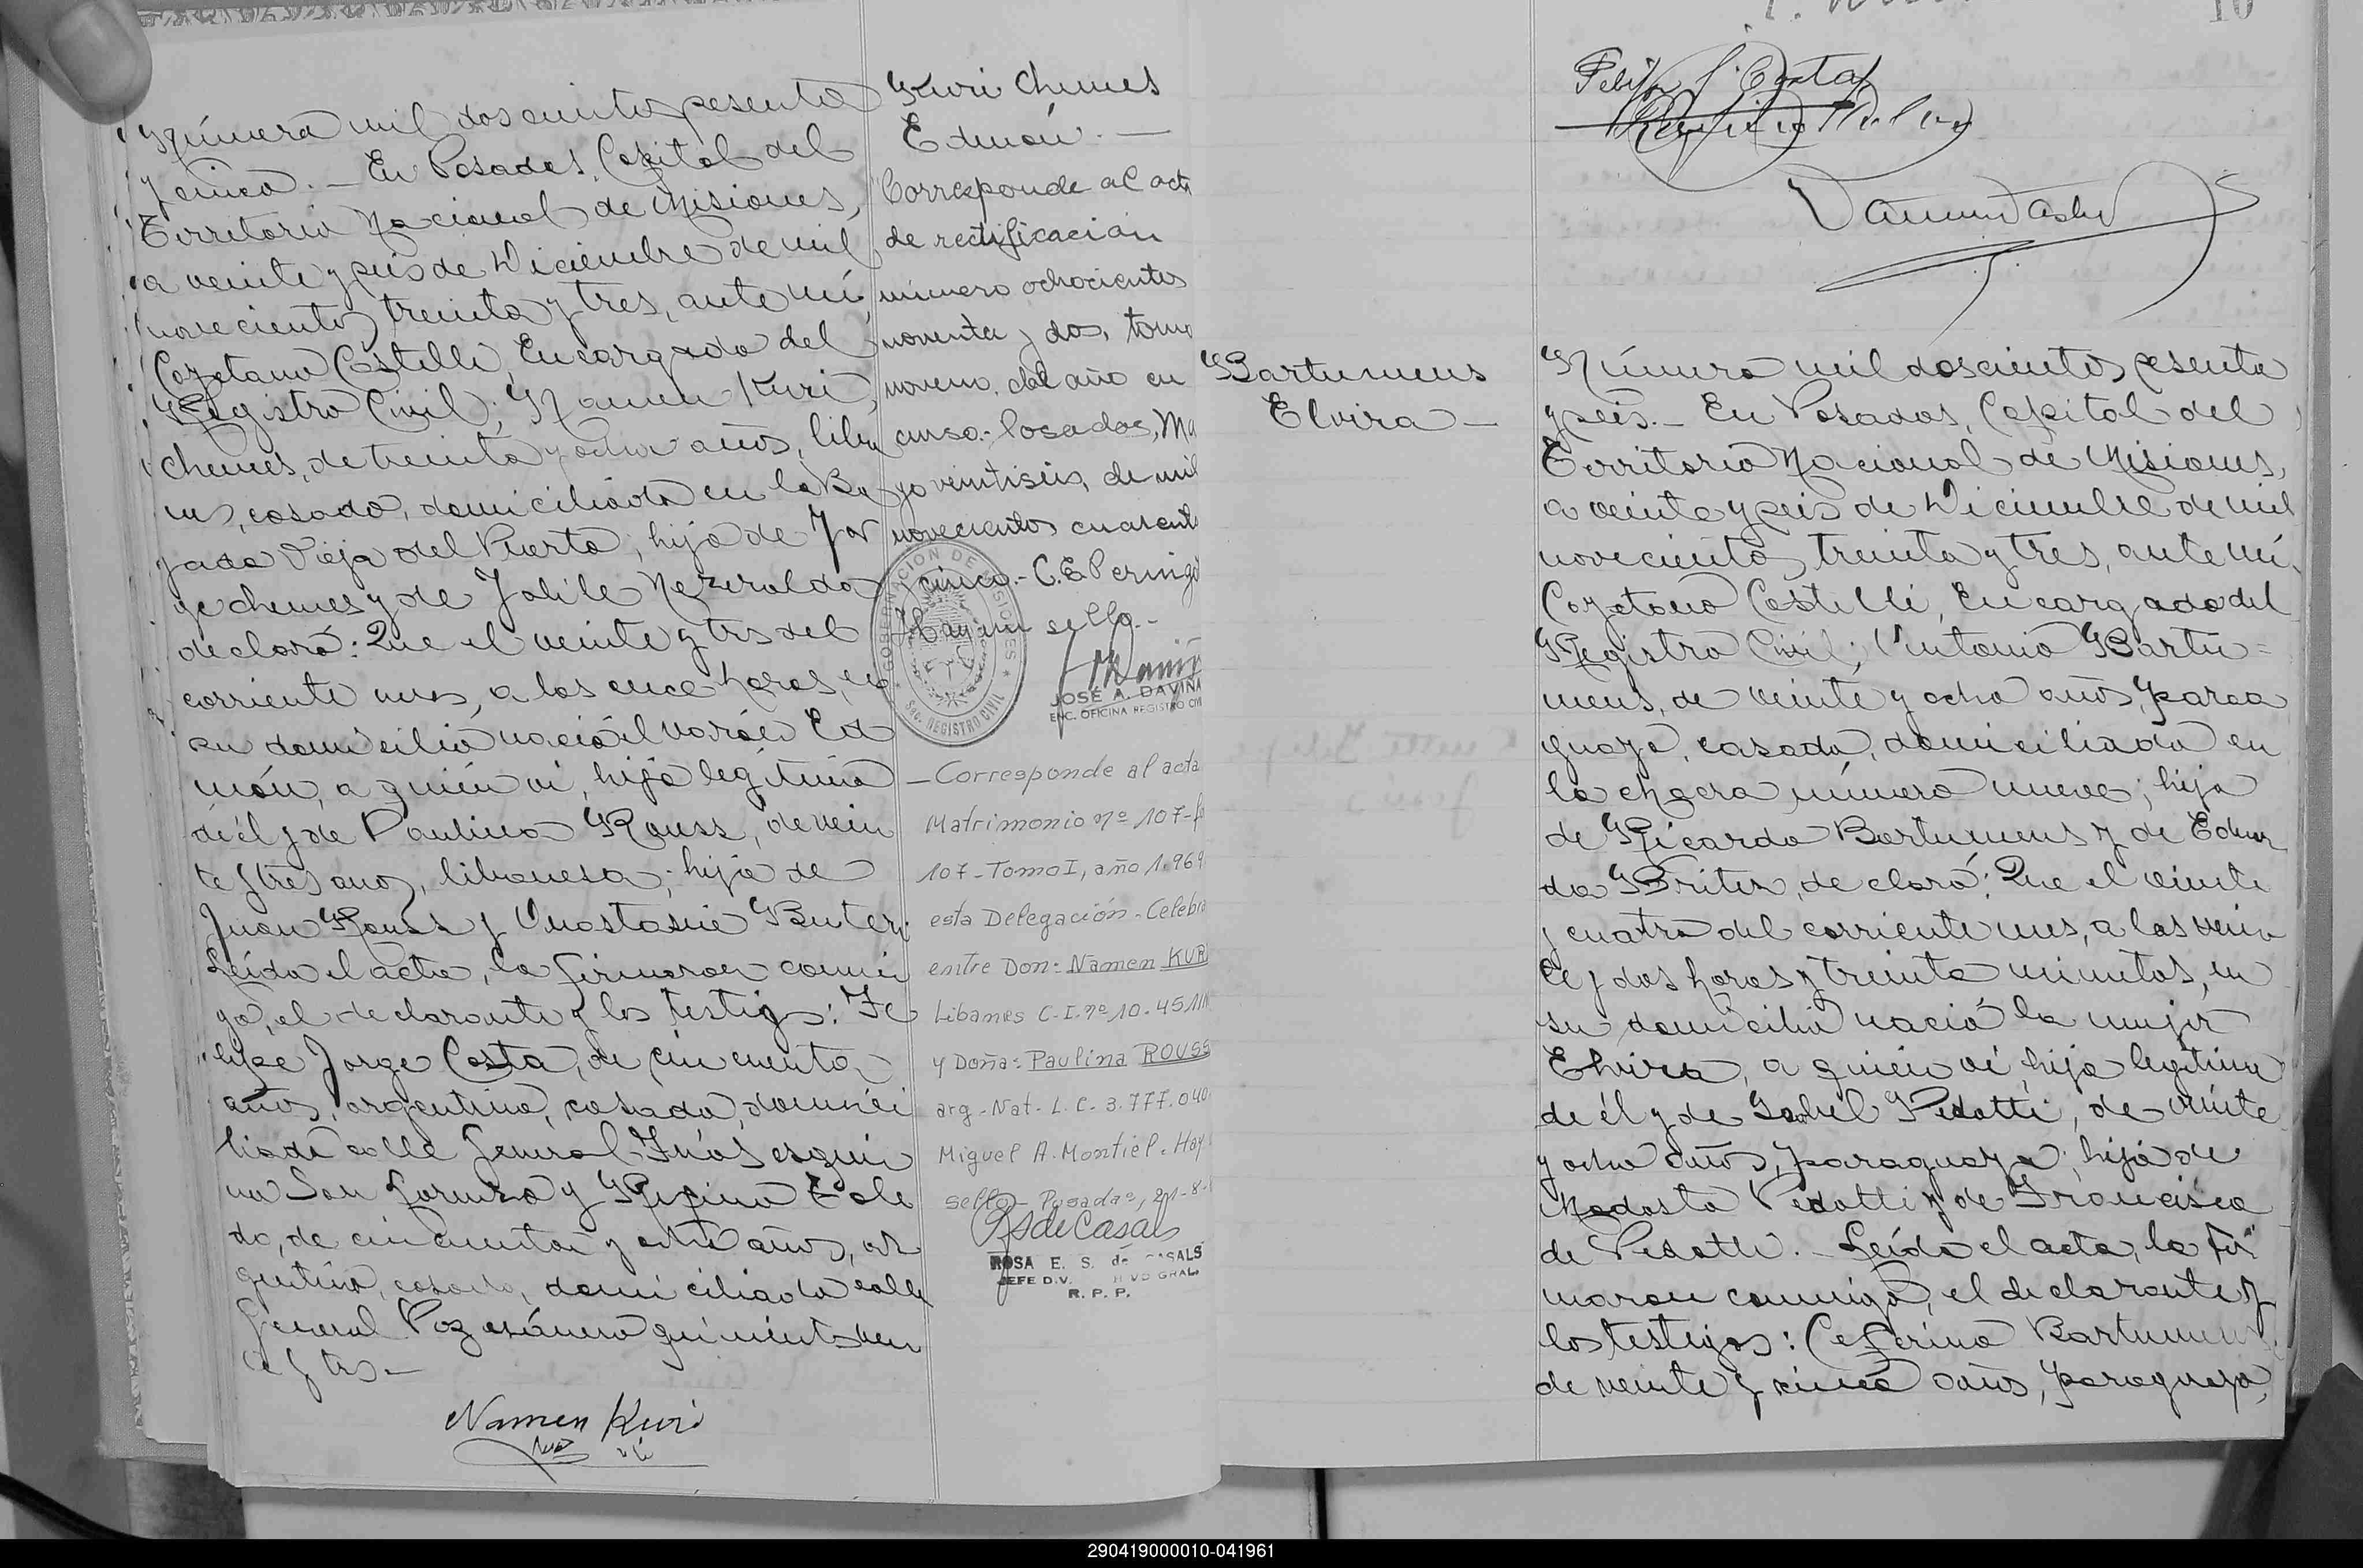 Número mil doscientos sesenta
y cinco. — En Posadas, Capital del
Territorio Nacional de Misiones,
a veinte y seis de Diciembre de mil
novecientos treinta y tres, ante mí,
Cayetano Castelli, Encargado del
Registro Civil; Namen Kuri
Chemes, de treinta y ocho años, liba
nes, casado, domiciliado en la Ba
jada Vieja del Puerto, hijo de Jor
ge Chemes y de Jalile
declaró: Que el veinte y tres del
corriente mes, a las once horas, en
su domicilio nació el varón Ed
món, a quién ví, hijo legítimo
de él y de Paulina Rouss, de vein
te y tres años, libanesa; hija de
Juan Rouss y Anastasia
Leída el acta, la firmaron conmi
go, el declarante y los testigos: Fe
lipe Jorge Costa, de cincuenta
años, argentino, casado, domici
liado calle General Frías esqui
na San Lorenzo y Rufino Tole
do, de cincuenta y años, ar
gentino, casado, domiciliado calle
General Paz número quinientos vein
te y tres.—
Namen Kuri
Kuri Chemes
Edmón. —
Corresponde al acta
de rectificación
número ochocientos
noventa y dos, tomo
noveno, del año en
curso.- Posadas, Ma
yo veintiseis, de mil
novecientos cuarenta
y cinco.- C.E. Peringo
Hay un sello.-
GOBERNACION DE MISIONES
SEC. REGISTRO CIVIL
JOSÉ A. DAVIÑA
ENC. OFICINA REGISTRO CIVI
— Corresponde al acta
Matrimonio nº 107-f
107-Tomo I, año 1.969
esta Delegación - Celebra
entre Don: Namen KUR
Libanes C.I. nº 10.451
y Doña: Paulina ROUSS
arg-Nat. L.C. 3.777.040
Miguel A. Montiel. Hay
sello - Posadas, 21-8-
RSdeCasals
ROSA E. S. de CASALS
JEFE DIV. GRAL.
R. P. P.
10
Felipe J. Costa
Rufino Toledo
Bartumeus
Elvira —
Número mil doscientos sesenta
y seis.- En Posadas, Capital del
Territorio Nacional de Misiones,
a veinte y seis de Diciembre de mil
novecientos treinta y tres, ante mí,
Cayetano Castelli, Encargado del
Registro Civil; Antonio Bartu=
meus, de veinte y ocho años, para
guayo, casado, domiciliado en
la chacra número nueve; hijo
de Ricardo Bartumeus y de Edu
da Britez, declaró: Que el veinte
y cuatro del corriente mes, a las vein
te y dos horas y treinta minutos, en
su domicilio nació la mujer
Elvira, a quién ví, hija legítima
de él y de Isabel Pedotti, de veinte
y ocho años, paraguaya; hija de
Modesto Pedotti y de Francisca
de Pedotti. - Leída el acta, la fir
maron conmigo, el declarante y
los testigos: Ceferino Bartumeus
de veinte y cinco años, paraguayo,
290419000010-041961